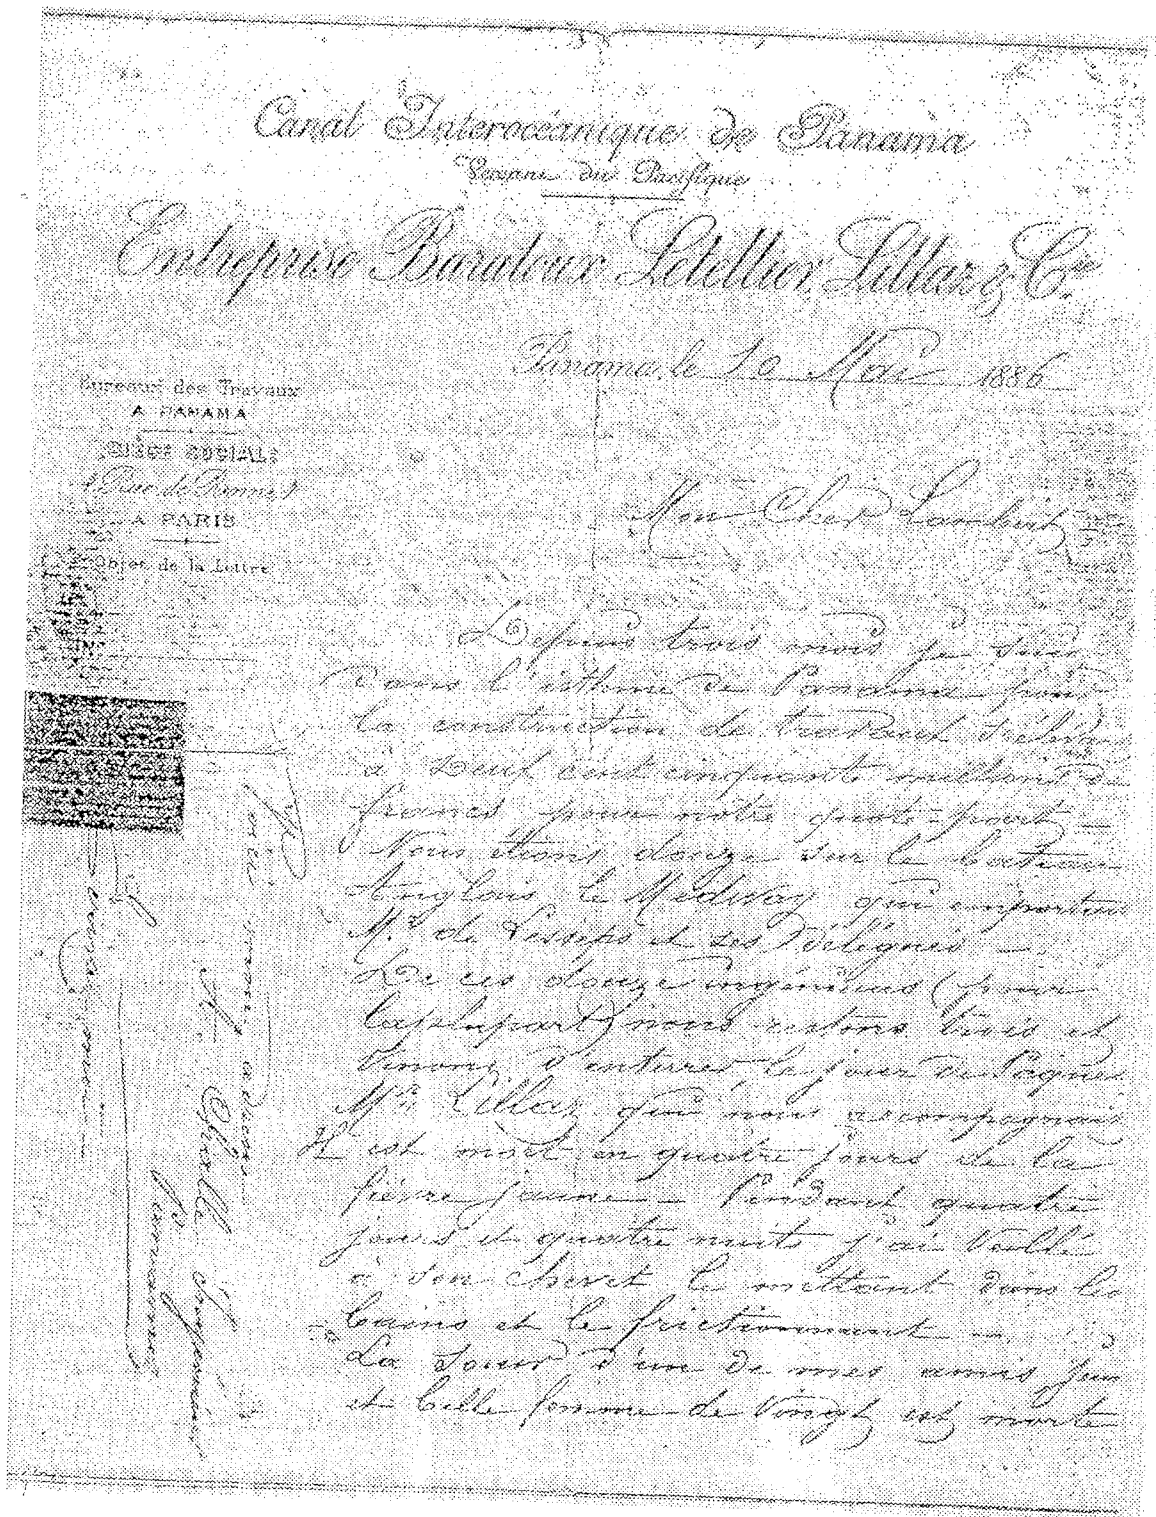 Canal Interocéanique de Panama
Versant du Pacifique
Entreprise Baratoux Letellier, Lillaz & Cie
Panama, le 10 Mai 1886
Bureaux des Travaux
A PANAMA
SIÈGE SOCIAL:
Rue de Rennes
A PARIS
Objet de la Lettre
Mon Cher Lambert
Depuis trois mois je suis
dans l'isthme de Panama pour
la construction de travaux
à Deux cent cinquante millions de
francs pour notre quote-part —
Nous étions douze sur le bateau
Anglais, le Medway qui emportait
Mr de Lesseps et ses Délégués —
De ces douze ingénieurs (pour
la plupart) nous restons trois et
Venons d'enterrer le jour de Pâques
Mr Lillaz qui nous accompagnait
Il est mort en quatre jours de la
fièvre jaune — Pendant quatre
jours et quatre nuits j'ai Veillé
à son chevet le mettant dans les
bains et le frictionnant —
La Soeur d'un de mes amis
et belle femme de Vingt est morte
Voici mon adresse
A. Ingénieur
Panama